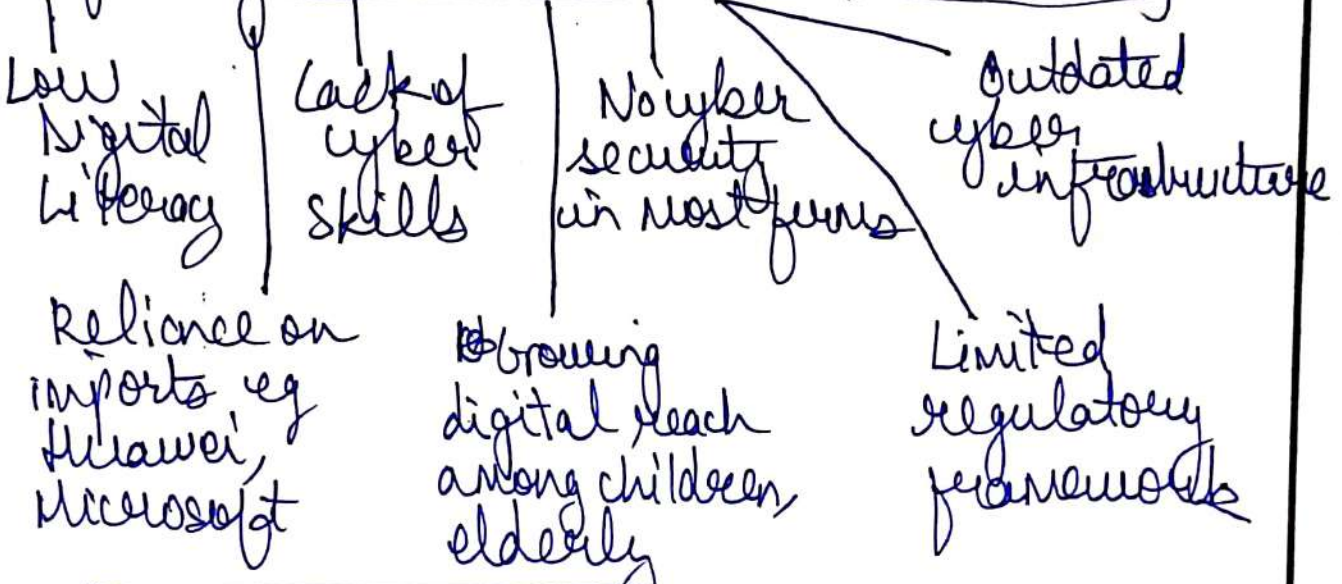 Low
Digital
Literacy
Lack of
cyber
skills
No cyber
security
in most firms
Outdated
cyber
infrastructure
Reliance on
imports eg
Huawei,
Microsoft
Growing
digital reach
among children,
elderly
Limited
regulatory
frameworks